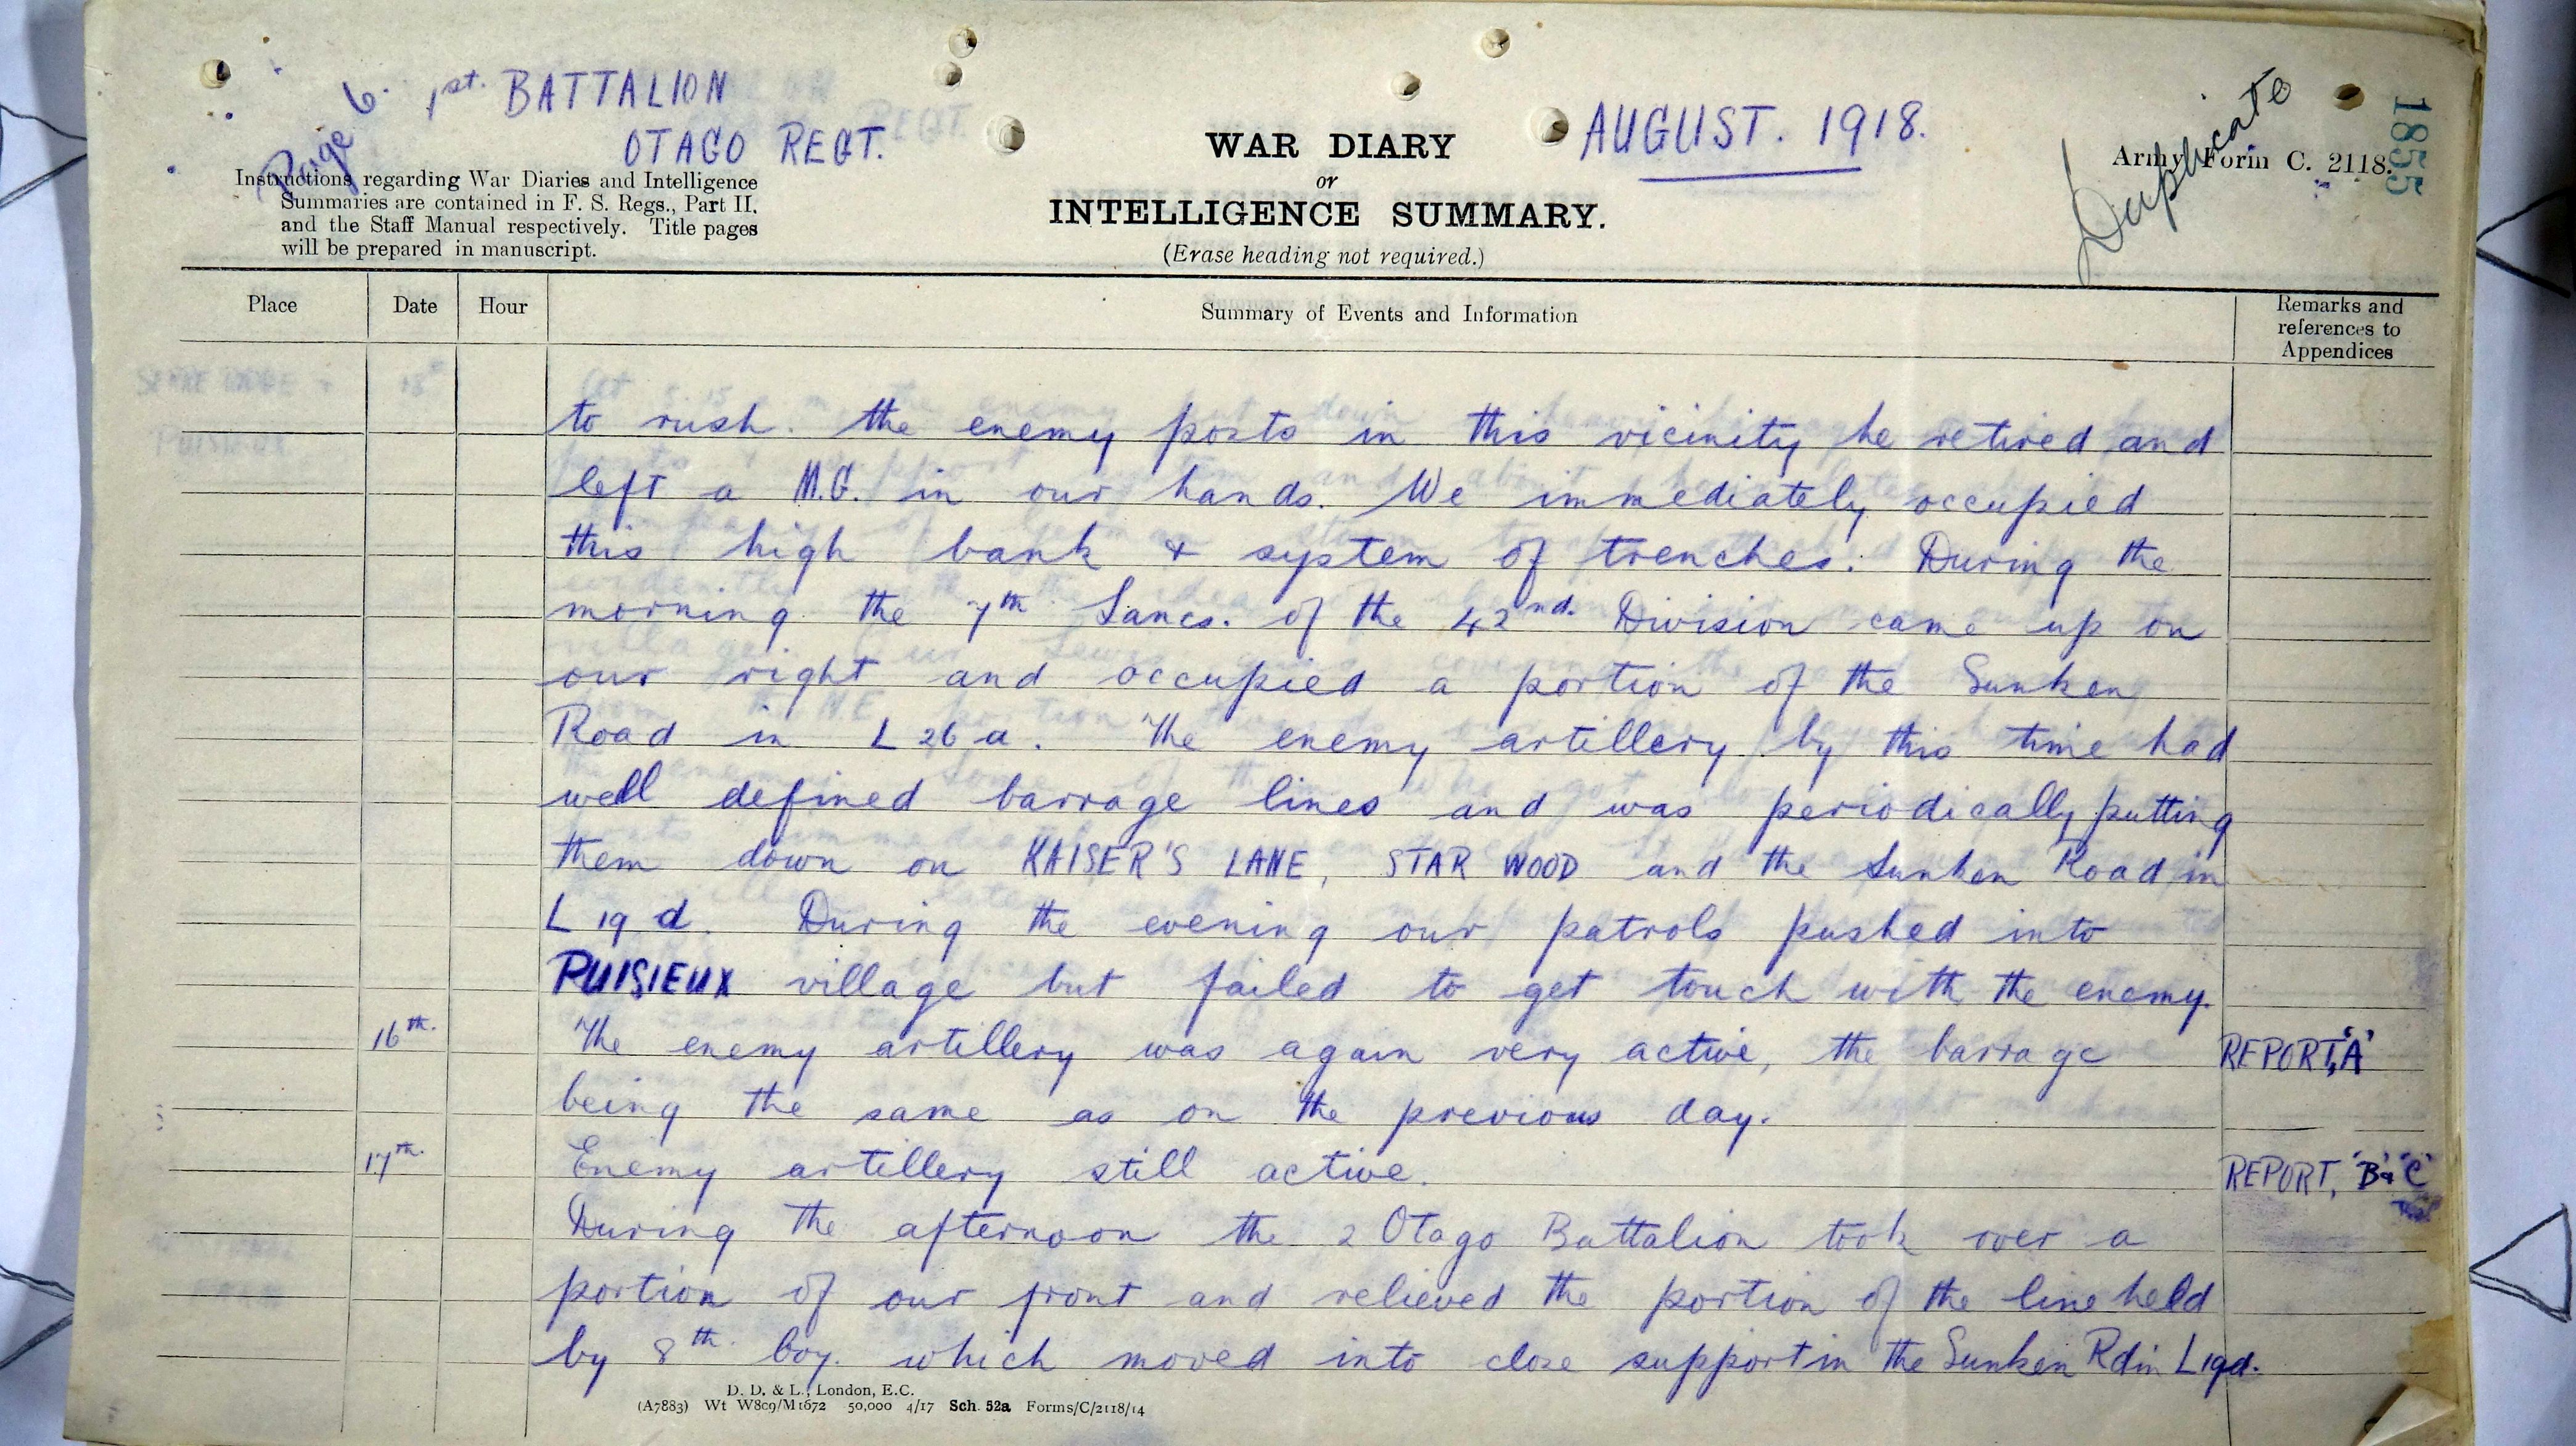 Page 6. 1st. BATTALION
OTAGO REGT.
AUGUST. 1918.
Duplicate
1855
Army Form C. 2118.
WAR DIARY
or
INTELLIGENCE SUMMARY.
(Erase heading not required.)
Instructions regarding War Diaries and Intelligence
Summaries are contained in F. S. Regs., Part II.
and the Staff Manual respectively. Title pages
will be prepared in manuscript.
Place Date Hour Summary of Events and Information Remarks and
references to
Appendices
to rush. the enemy posts in this vicinity he retired and
left a M.G. in our hands. We immediately occupied
this high bank & system of trenches. During the
morning the 7th Lancs. of the 42nd. Division came up on
our right and occupied a portion of the Sunken
Road in L 26 a. The enemy artillery by this time had
well defined barrage lines and was periodically putting
them down on KAISER'S LANE, STAR WOOD and the Sunken Road in
L 19 d. During the evening our patrols pushed into
PUISIEUX village but failed to get touch with the enemy.
16th. The enemy artillery was again very active, the barrage REPORT, 'A'
being the same as on the previous day.
17th. Enemy artillery still active. REPORT, 'B' & 'C'
During the afternoon the 2 Otago Battalion took over a
portion of our front and relieved the portion of the line held
by 8th. Coy. which moved into close support in the Sunken Rd in L 19d.
D. D. & L., London, E.C.
(A7883) Wt W809/M1672 50,000 4/17 Sch. 52a Forms/C/2118/14